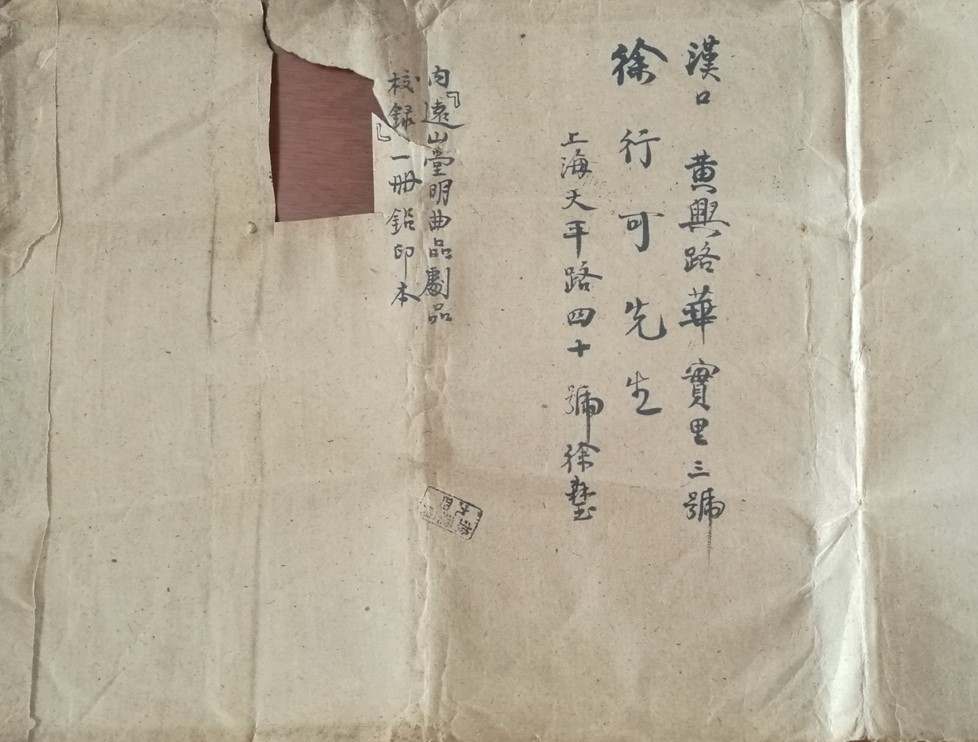 漢口 黄興路華實里三號
徐行可先生
上海天平路四十號徐
内『遠山堂明曲品劇品
校録』一册鉛印本